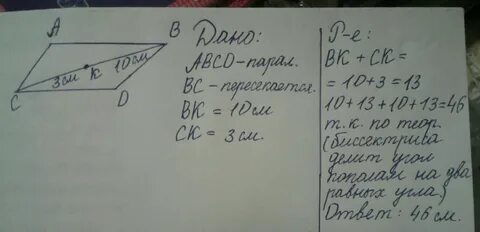 A
B
3см
K
10см
C
D
Дано:
ABCD-парал.
BC-пересекается.
BK = 10см
CK = 3см.
Р-е:
BK + CK =
= 10+3 = 13
10+13+10+13=46
т.к. по теор.
(биссектриса
делит угол
пополам на два
равных угла)
Ответ: 46 см.